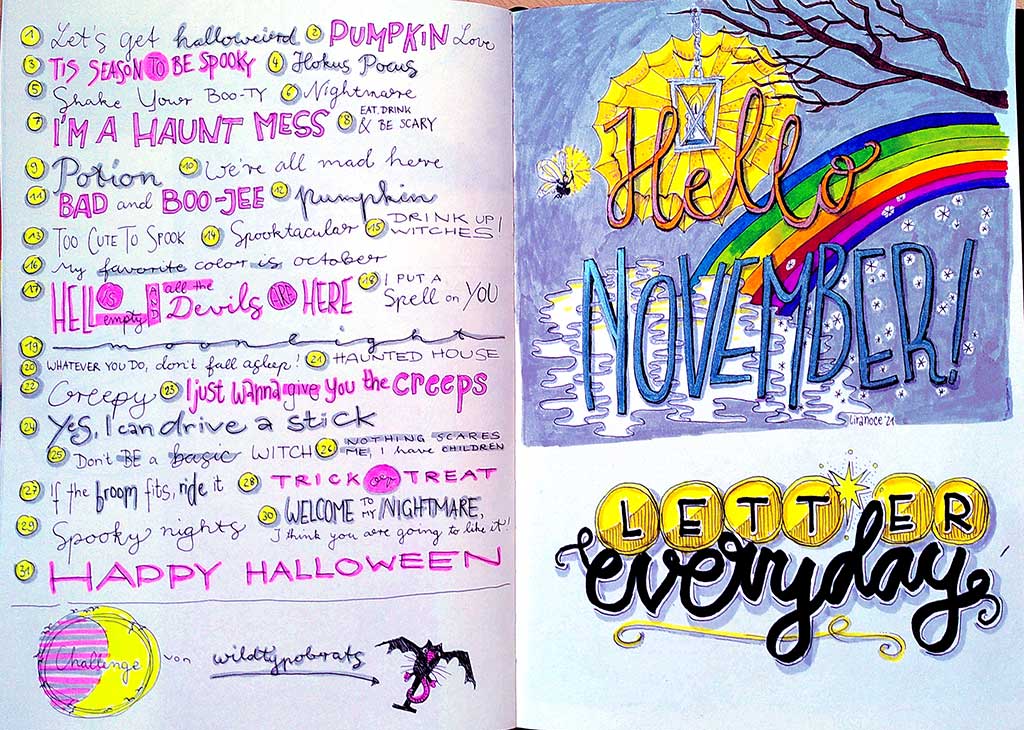 1 Let's get halloweierd 2 PUMPKIN Love
3 TIS SEASON TO BE SPOOKY 4 Hokus Pocus
5 Shake Your BOO-TY 6 Nightmare
7 I'M A HAUNT MESS 8 EAT, DRINK
& BE SCARY
9 Potion 10 We're all mad here
11 BAD and BOO-JEE 12 pumpkin
13 TOO CUTE TO SPOOK 14 Spooktacular 15 DRINK UP
WITCHES!
16 My favorite color is october
17 HELL IS empty AND all the Devils ARE HERE 18 I PUT A
Spell on YOU
19 moonlight
20 WHATEVER YOU DO, don't fall asleep! 21 HAUNTED HOUSE
22 Creepy 23 I just wanna give you the CREEPS
24 Yes, I can drive a stick
25 Don't BE a basic WITCH 26 NOTHING SCARES
ME, I have CHILDREN
27 If the broom fits, ride it 28 TRICK or TREAT
29 Spooky nights 30 WELCOME TO MY NIGHTMARE,
I think you are going to like it!!
31 HAPPY HALLOWEEN
Challenge von wildtypobrats
Hello
NOVEMBER!
Liranoce '21
LETTER
everyday